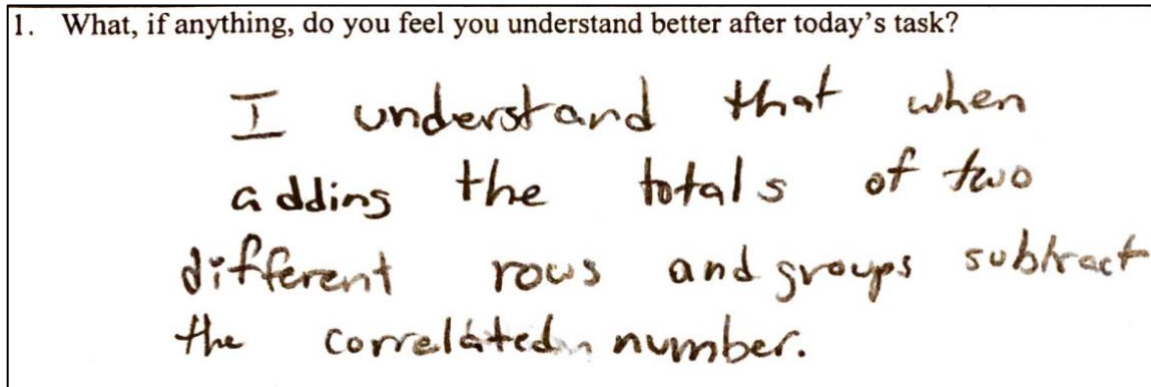 1. What, if anything, do you feel you understand better after today's task?
I understand that when
adding the totals of two
different rows and groups subtract
the correlated number.